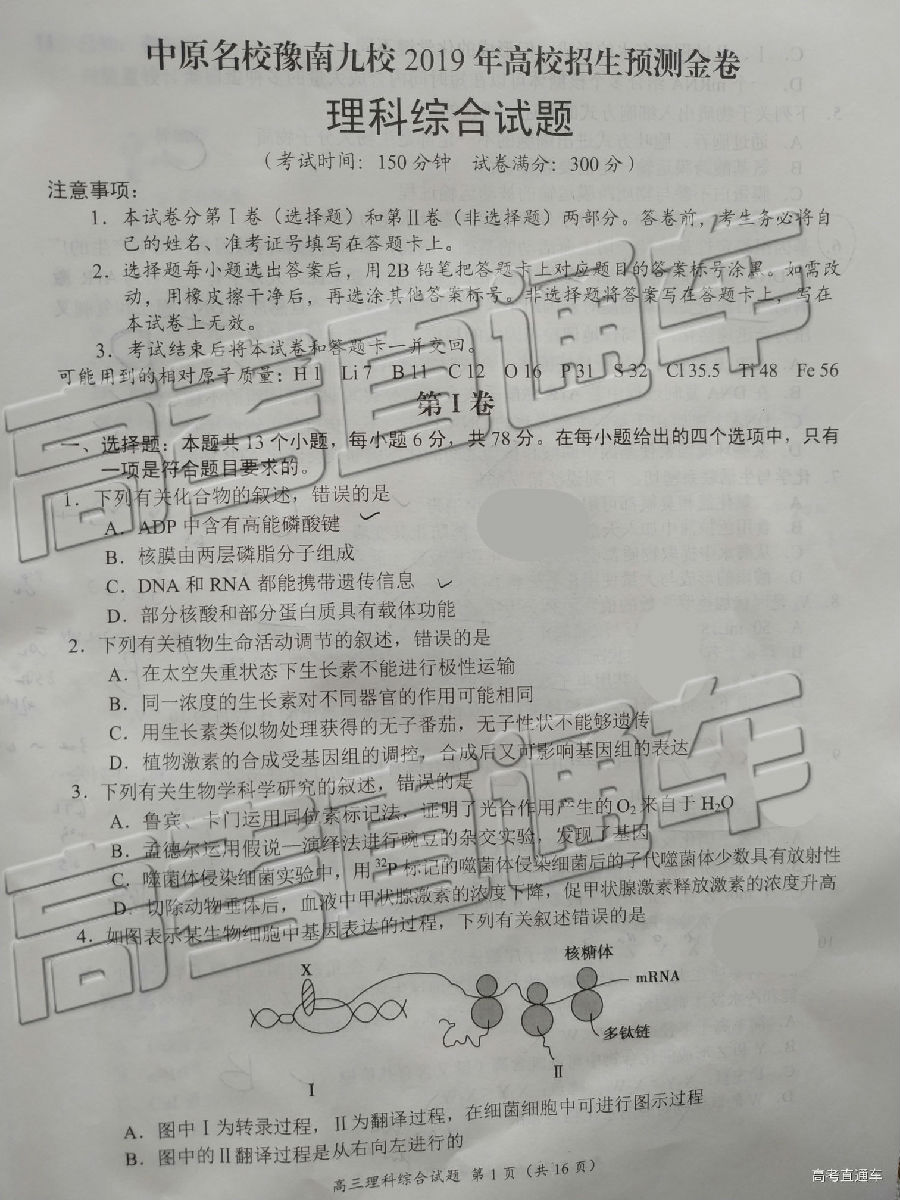 中原名校豫南九校2019年高校招生预测金卷
理科综合试题
（考试时间：150分钟　试卷满分：300分）
注意事项：
1．本试卷分第Ⅰ卷（选择题）和第Ⅱ卷（非选择题）两部分。答卷前，考生务必将自
己的姓名、准考证号填写在答题卡上。
2．选择题每小题选出答案后，用2B铅笔把答题卡上对应题目的答案标号涂黑。如需改
动，用橡皮擦干净后，再选涂其他答案标号。非选择题将答案写在答题卡上，写在
本试卷上无效。
3．考试结束后将本试卷和答题卡一并交回。
可能用到的相对原子质量：H 1　Li 7　B 11　C 12　O 16　P 31　S 32　Cl 35.5　Ti 48　Fe 56
第Ⅰ卷
一、选择题：本题共13个小题，每小题6分，共78分。在每小题给出的四个选项中，只有
一项是符合题目要求的。
1．下列有关化合物的叙述，错误的是
A．ADP中含有高能磷酸键
B．核膜由两层磷脂分子组成
C．DNA和RNA都能携带遗传信息
D．部分核酸和部分蛋白质具有载体功能
2．下列有关植物生命活动调节的叙述，错误的是
A．在太空失重状态下生长素不能进行极性运输
B．同一浓度的生长素对不同器官的作用可能相同
C．用生长素类似物处理获得的无子番茄，无子性状不能够遗传
D．植物激素的合成受基因组的调控，合成后又可影响基因组的表达
3．下列有关生物学科学研究的叙述，错误的是
A．鲁宾、卡门运用同位素标记法，证明了光合作用产生的O₂来自于H₂O
B．孟德尔运用假说—演绎法进行豌豆的杂交实验，发现了基因
C．噬菌体侵染细菌实验中，用³²P标记的噬菌体侵染细菌后的子代噬菌体少数具有放射性
D．切除动物垂体后，血液中甲状腺激素的浓度下降，促甲状腺激素释放激素的浓度升高
4．如图表示某生物细胞中基因表达的过程，下列有关叙述错误的是
核糖体
X
mRNA
多钛链
Ⅱ
Ⅰ
A．图中Ⅰ为转录过程，Ⅱ为翻译过程，在细菌细胞中可进行图示过程
B．图中的Ⅱ翻译过程是从右向左进行的
高三理科综合试题　第1页（共16页）
高考直通车
高考直通车
高考直通车